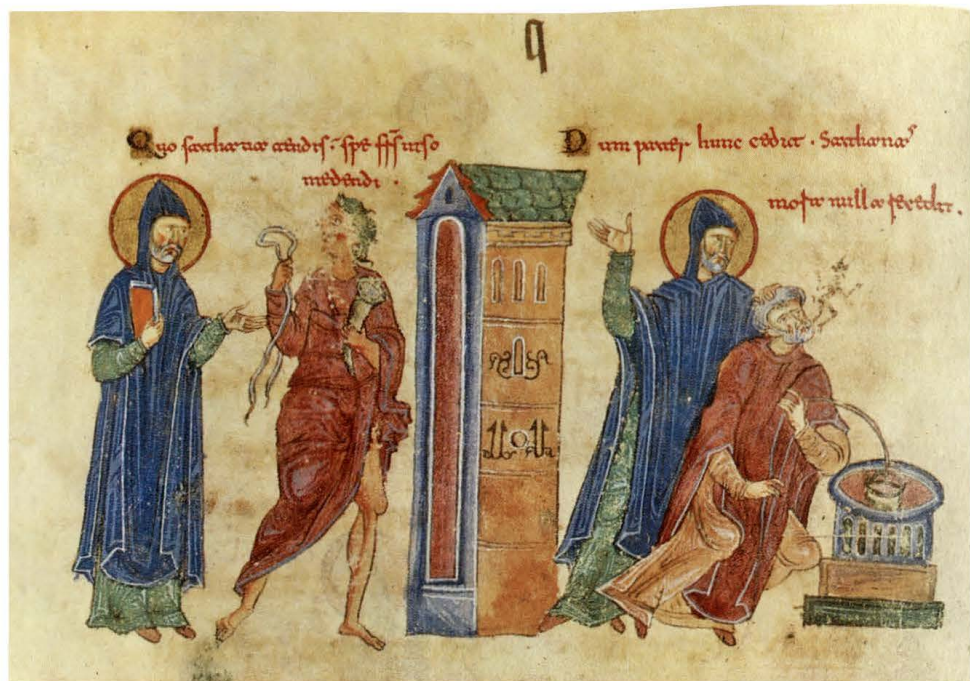 q
Quo sathana tendis : spe frs uiso
medendi .
Dum pater hunc cedit . Sathanas
mora nulla recedit .